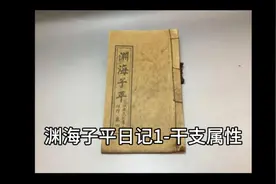 渊海子平
渊海子平日记1-干支属性